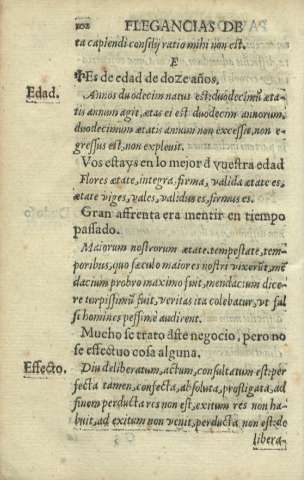 102 ELEGANCIAS DE
ta capiendi consilij ratio mihi non est.
E
Es de edad de doze años.
Edad. Annos duodecim natus est: duodecimũ æta-
tis annum agit, ætas ei est duodecim annorum,
duodecimum ætatis annum non excessit, non e-
gressus est, non expleuit.
Vos estays en lo mejor d vuestra edad
Flores ætate, integra, firma, valida ætate es,
ætate viges, vales, validus es, firmus es.
Gran affrenta era mentir en tiempo
passado.
Maiorum nostrorum ætate, tempestate, tem-
poribus, quo sæculo maiores nostri vixerũt, mẽ
dacium probro maximo fuit, mendacium dice
re torpissimũ fuit, veritas ita colebatur, vt fal
si homines pessimè audirent.
Mucho se trato dste negocio, pero no
se effectuo cosa alguna.
Effecto. Diu deliberatum, actum, consultatum est: per
fecta tamen, confecta, absoluta, profligata, ad
finem perducta res non est, exitum res non ha-
buit, ad exitum non venit, perducta non est: de
libera-